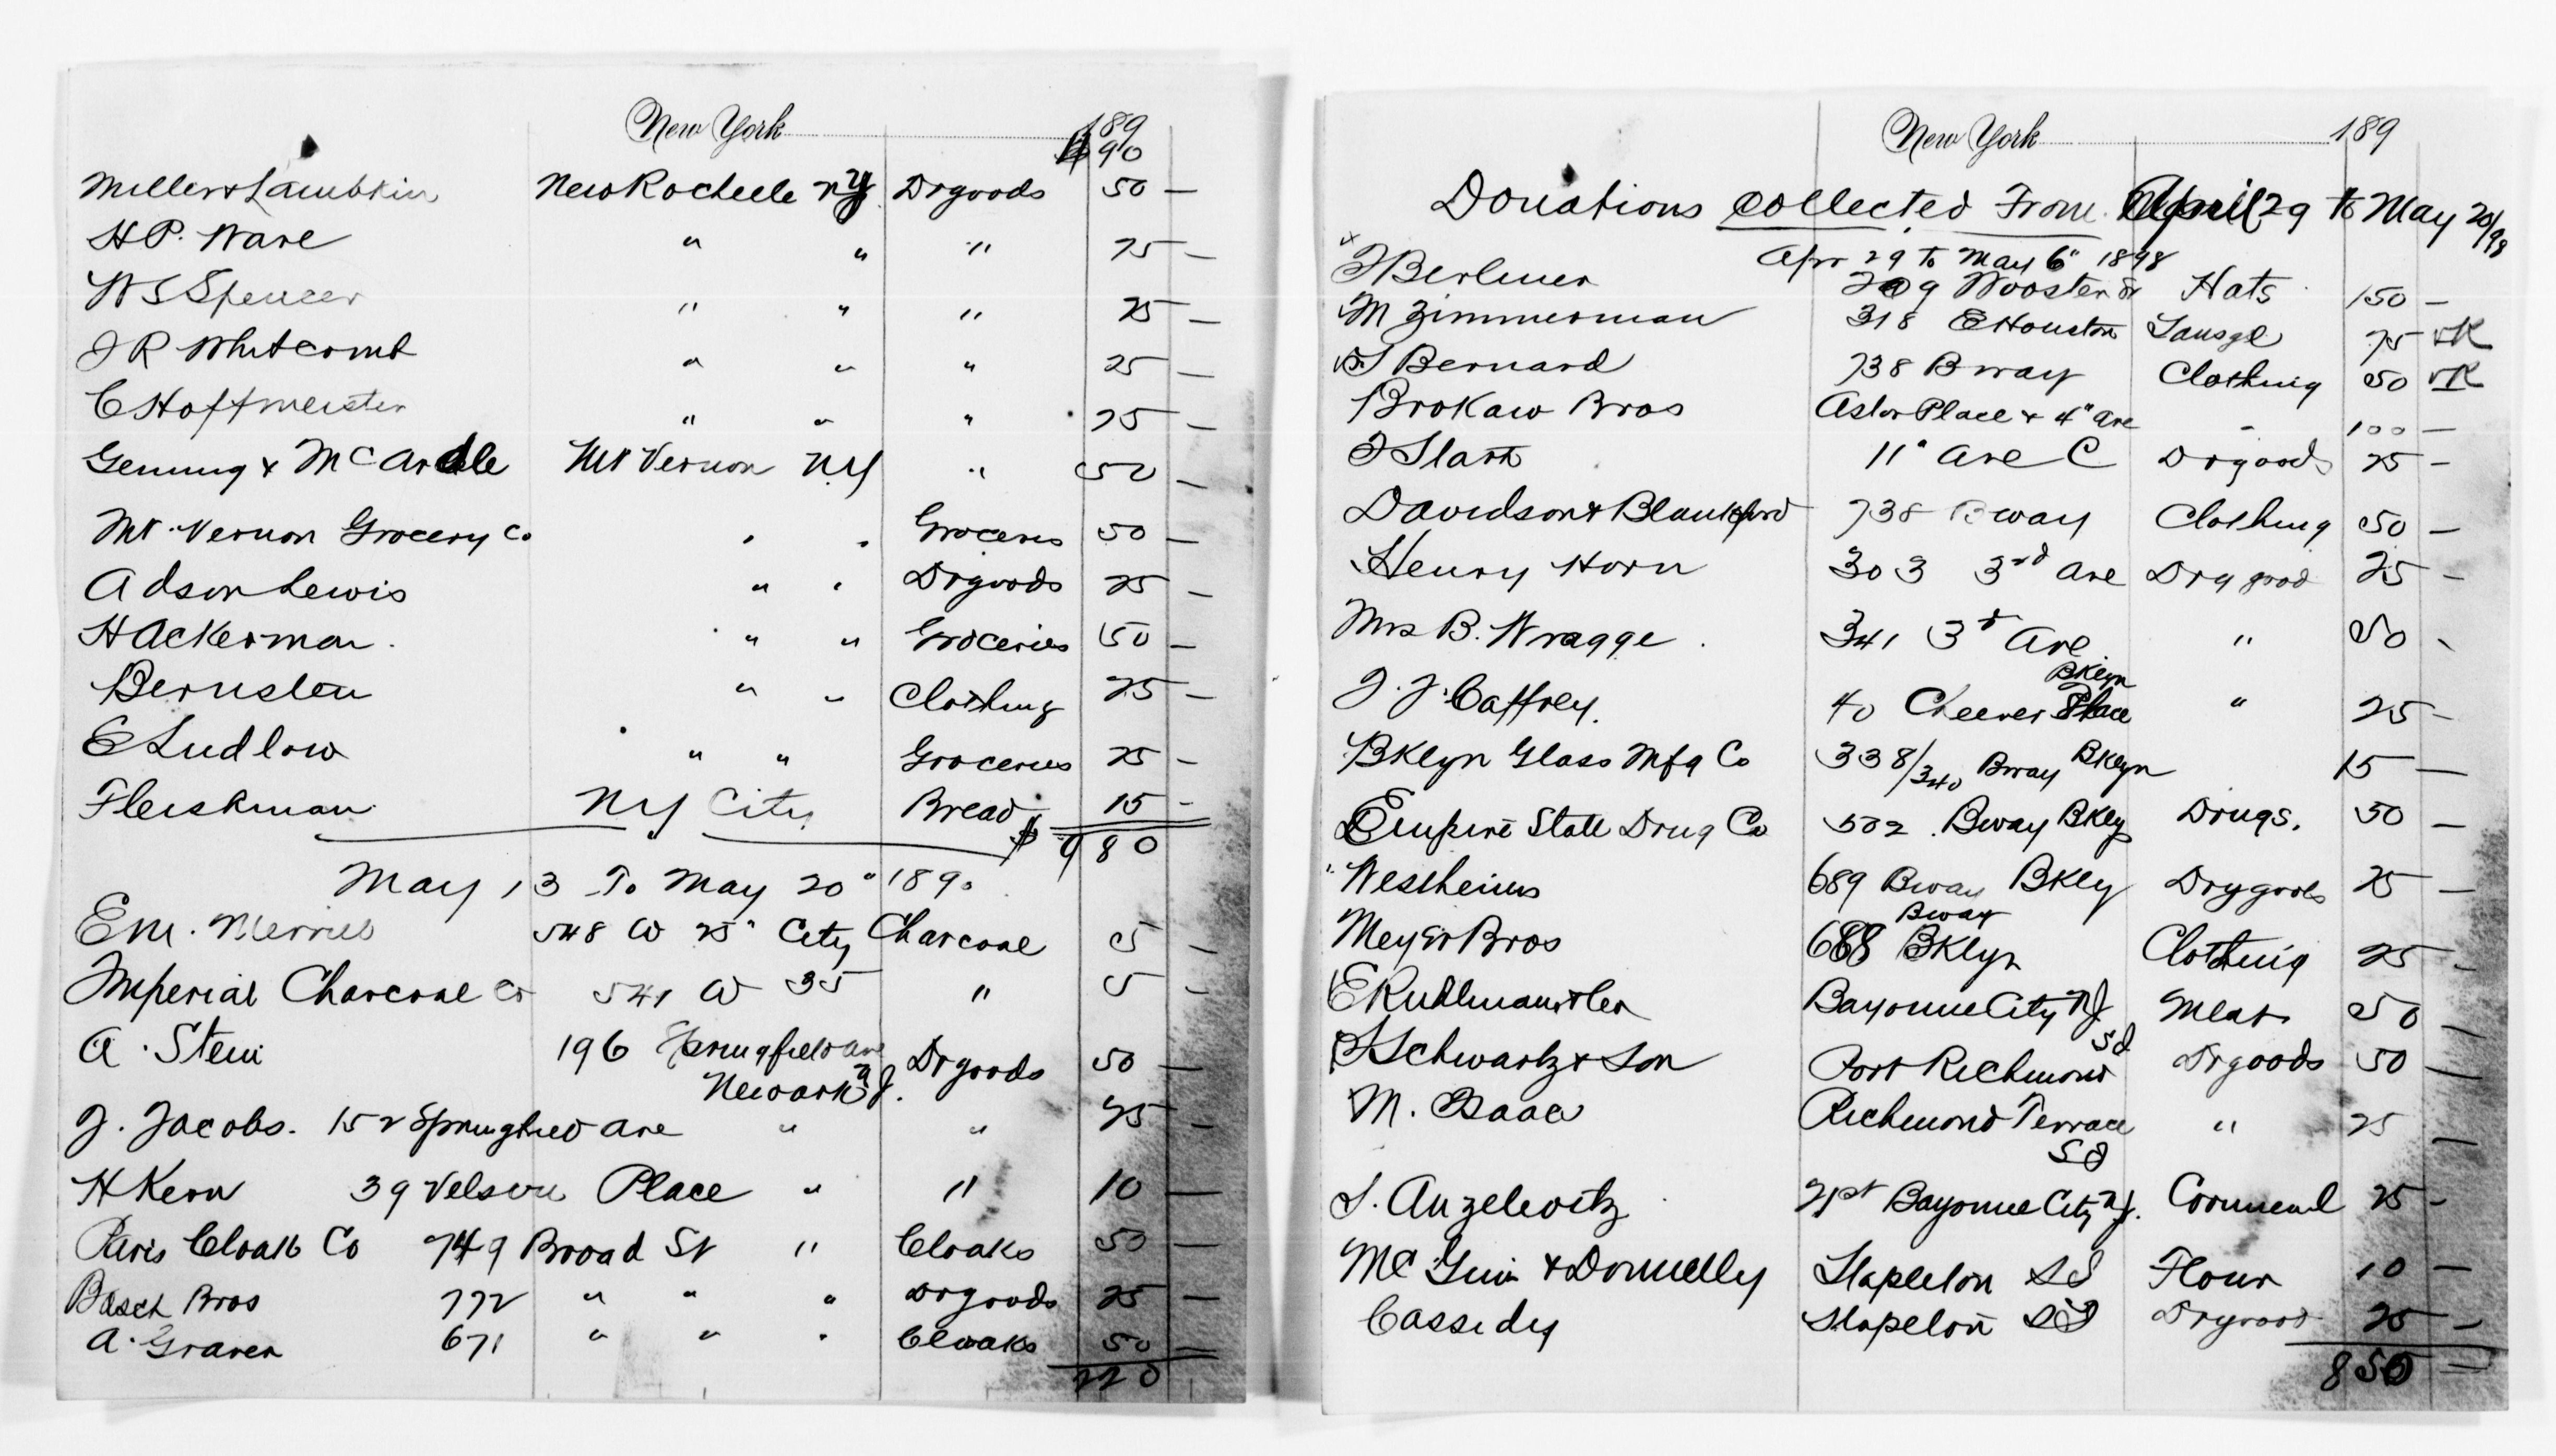 New York 189
$ 90
Miller & Lambkin New Rochelle NY Drgoods 50 —
H P. Ware " " " 25 —
W S Spencer " " " 25 —
J R Whitcomb " " " 25 —
C Hoffmeister " " " 25 —
Genung & McArdle Mt Vernon NY " 50 —
Mt. Vernon Grocery Co " " Groceries 50 —
Adson Lewis " " Drgoods 25 —
H Ackerman. " " Groceries 50 —
Bernstein " " Clothing 25 —
E Ludlow " " Groceries 25 —
Fleishman NY City Bread 15 —
$ 980
May 13 To May 20" 189
E M. Merrill 548 W 25" City Charcoal 5 —
Imperial Charcoal Co 541 W 35 " 5 —
A. Stein 196 Springfield Ave Drgoods 50 —
Newark N J.
J. Jacobs. 152 Springfield Ave " " 25 —
H Kern 39 Place " " 10 —
Paris Cloak Co 749 Broad St " Cloaks 50 —
Basch Bros 772 " " " Drgoods 25 —
A. Graver 671 " " " Cloaks 50 —
220
New York 189
Donations collected From April 29 to May 20/98
Apr 29 to May 6" 1898
J Berliner 209 Wooster St Hats 150 —
M Zimmerman 318 E Houston Sausge 75 K
S Bernard 738 Bway Clothing 50 K
Brokaw Bros Astor Place & 4" Ave " 100 —
11" Ave C Drgoods 25 —
Davidson & Blankford 738 Bway Clothing 50 —
Henry Horn 303 3rd Ave Dry good 25 —
Mrs B. Wragge. 341 3d Ave " 50 -
Bklyn
J. J. Caffrey. 40 Cheever Place " 25 —
Bklyn Glass Mfg Co 338/340 Bway Bklyn 15 —
Empire State Drug Co 502. Bway Bkly Drugs. 50 —
Westheims 689 Bway Bkly Drygoods 25 —
Bway
Meyer Bros 688 Bklyn Clothing 25 —
E Ruhlman Bayonne City N J. Meat 50 —
S I
S Schwartz & Son Port Richmond Drgoods 50 —
M. Isaac Richmond Terrace " 25 —
S I
S. Anzelevitz 21st Bayonne City N J. Cornmeal 25 —
Mc Ginn & Donnelly Stapleton S I Flour 10 —
Cassidy Stapelton S I Drygood 25 —
850